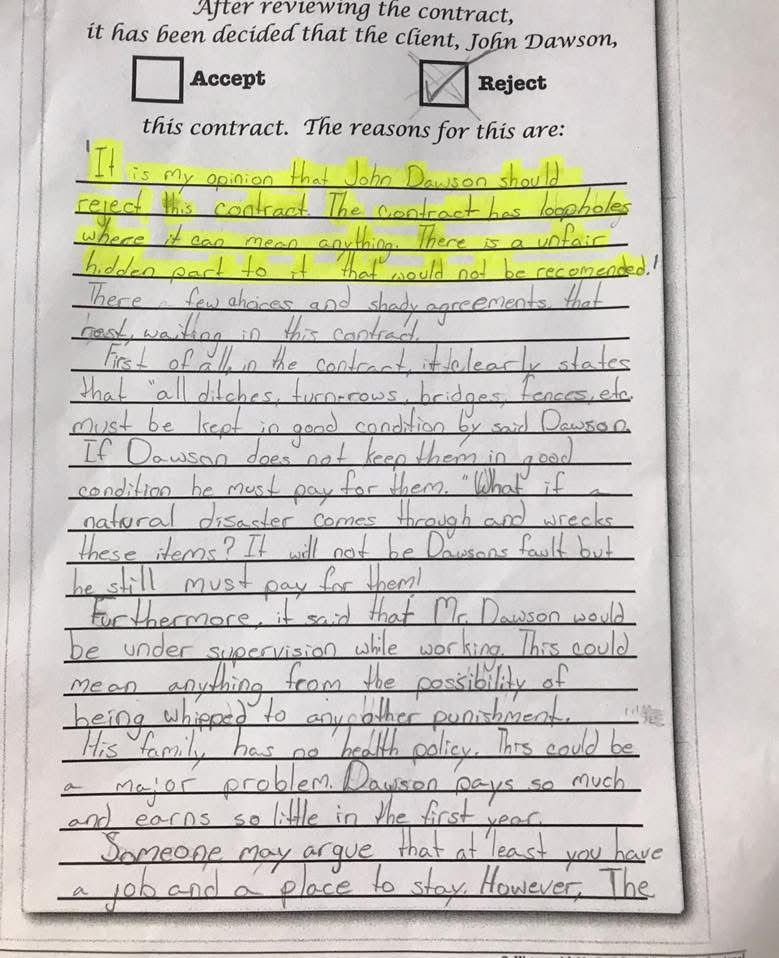 After reviewing the contract,
it has been decided that the client, John Dawson,
Accept Reject
this contract. The reasons for this are:
It is my opinion that John Dawson should
reject this contract. The contract has loopholes
where it can mean anything. There is a unfair
hidden part to it that would not be recomended.
There a few choices and shady agreements that
waiting in this contract.
First of all, in the contract, it clearly states
that "all ditches, turn-rows, bridges, fences, etc.
must be kept in good condition by said Dawson.
If Dawson does not keep them in good
condition he must pay for them." What if a
natural disaster comes through and wrecks
these items? It will not be Dawsons fault but
he still must pay for them!
Furthermore, it said that Mr. Dawson would
be under supervision while working. This could
mean anything from the possibility of
being whipped to any other punishment.
His family has no health policy. This could be
a major problem. Dawson pays so much
and earns so little in the first year.
Someone may argue that at least you have
a job and a place to stay. However, The